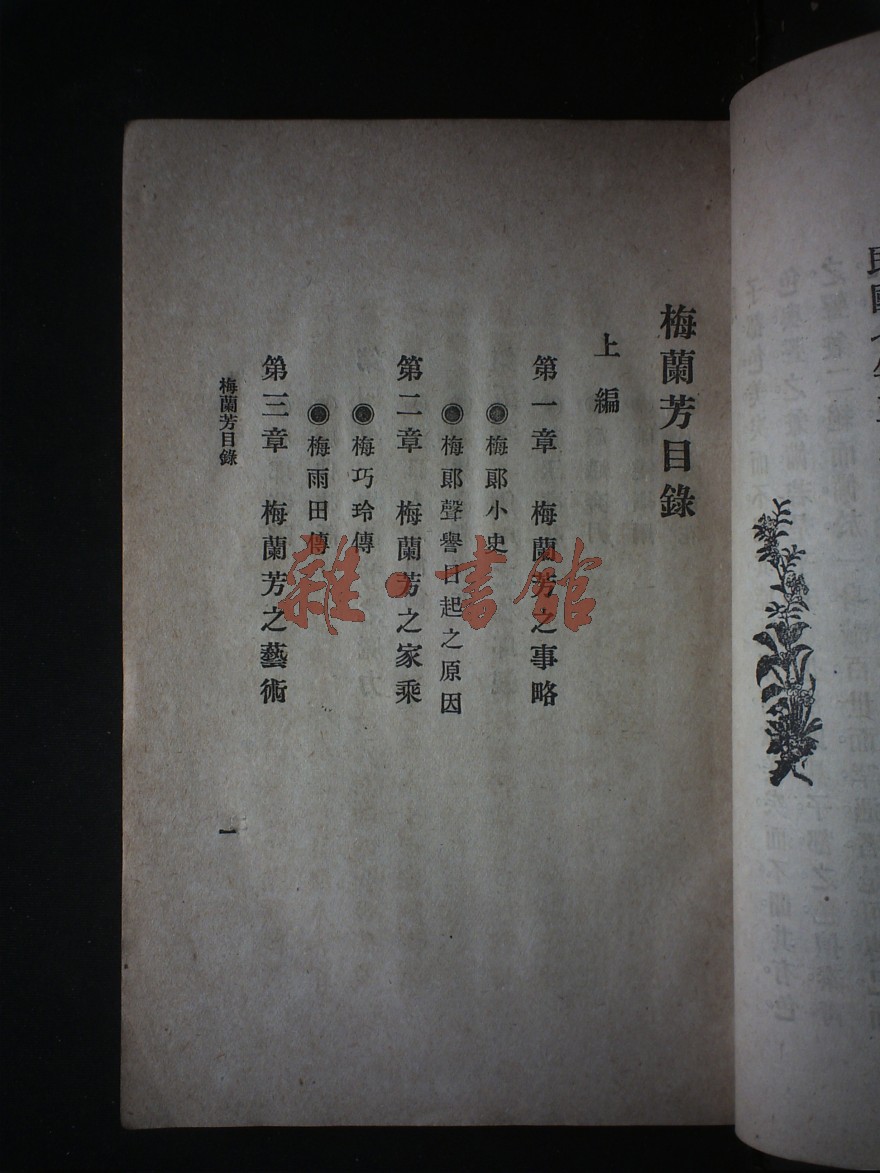 梅蘭芳目錄
上編
第一章 梅蘭芳之事略
◉梅郎小史
◉梅郎聲譽日起之原因
第二章 梅蘭芳之家乘
◉梅巧玲傳
◉梅雨田傳
第三章 梅蘭芳之藝術
梅蘭芳目錄
一
雜·書館